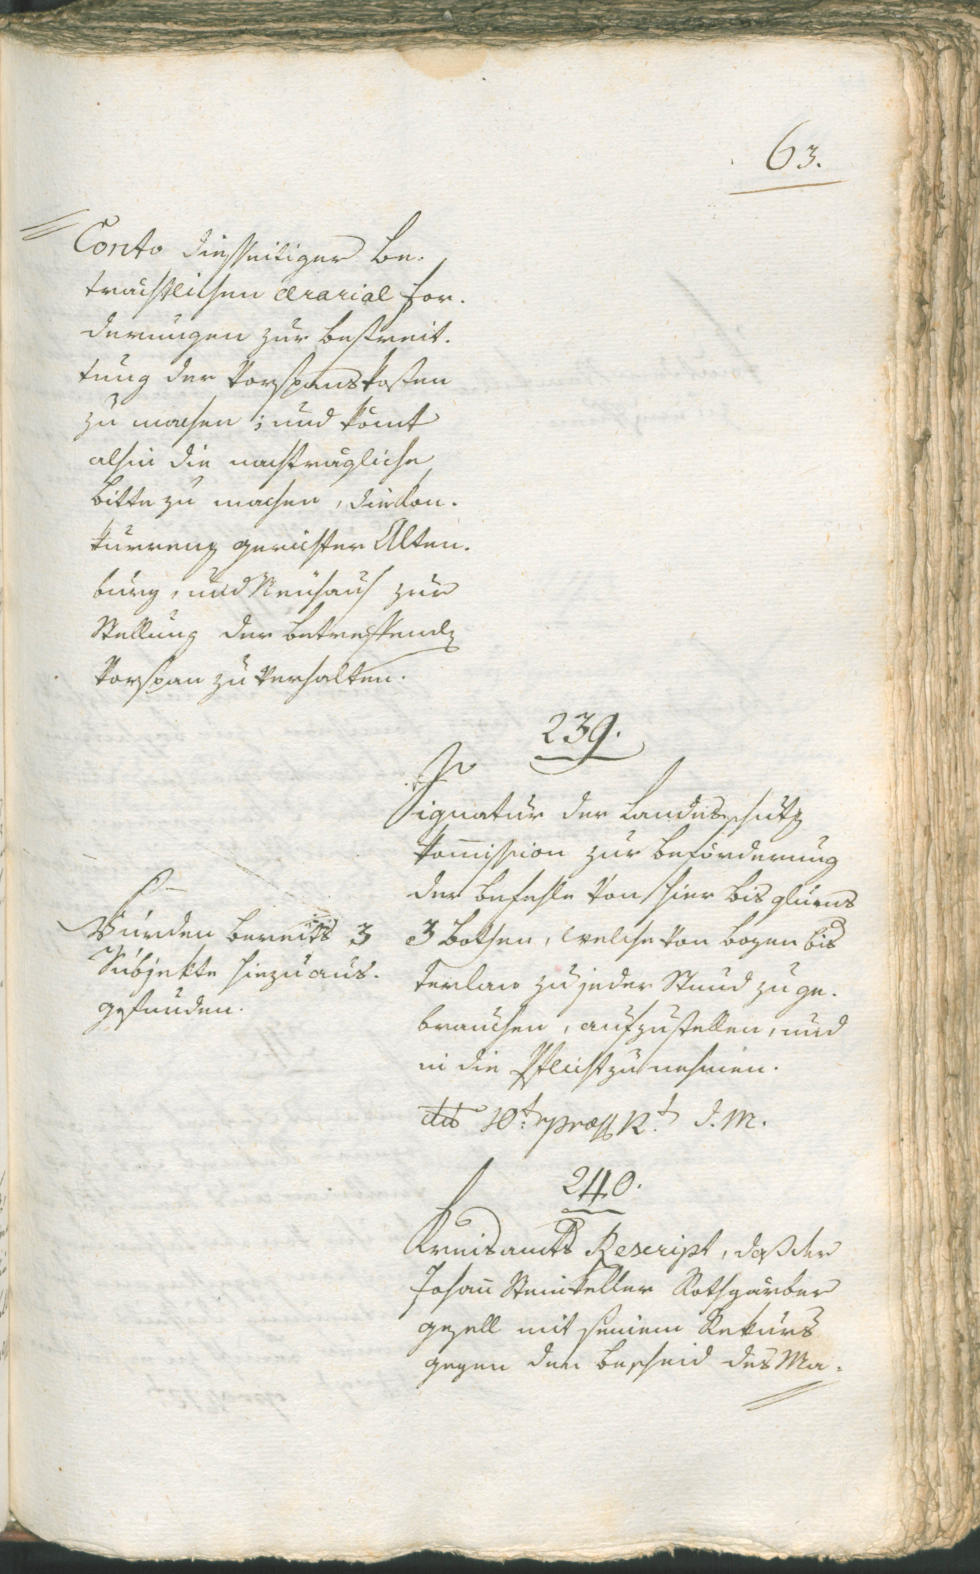 63.
Conto diesseitiger Be¬
trächtlichen Ararial For¬
derungen zur Bestreit¬
tung der Vorspanskosten
zu machen; und kömt
alhin die nachträgliche
Bitte zu machen, die Con¬
kurrenz gerichter Alten¬
burg, und Neuhaus zur
Stellung der betreffende
Vorspan zu verhalten.
239.
Signatur der Landesschutz
Kom̅ission zur Beförderung
der Befehle von hier bis glurns
3 Bothen, welche von Bozen bis
Terlan zu jeder Stund zu ge¬
brauchen, aufzustellen, und
in die Pflicht zu nehmen.
dto 10.t præs 12.t d. M.
Wurden bereits 3
Subjekte hiezu aus¬
gefunden.
240.
Kreisamts Rescript, daß der
Johan̅ Steinkeller Rothgärber
gesell mit seinem Rekurs
gegen den Bescheid des Ma¬